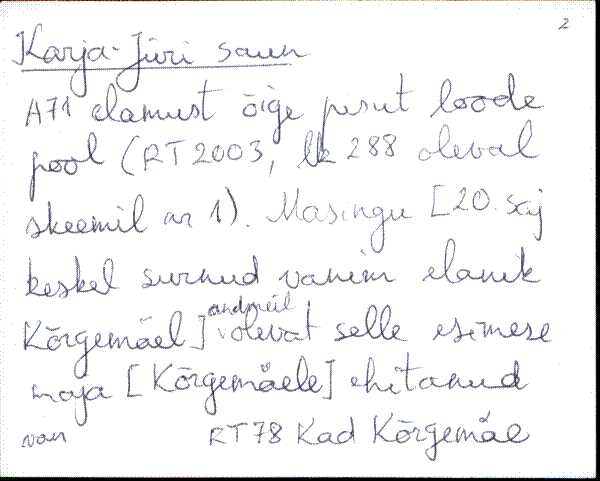 2
Karja-Jüri saun
A71 elamust õige pisut loode
pool (RT2003, lk 288 oleval
skeemil nr 1). Masingu [20. saj
keskel surnud vanim elanik
Kõrgemäel] andmeil olevat selle esimese
maja [Kõrgemäele] ehitanud
van RT78 Kad Kõrgemäe